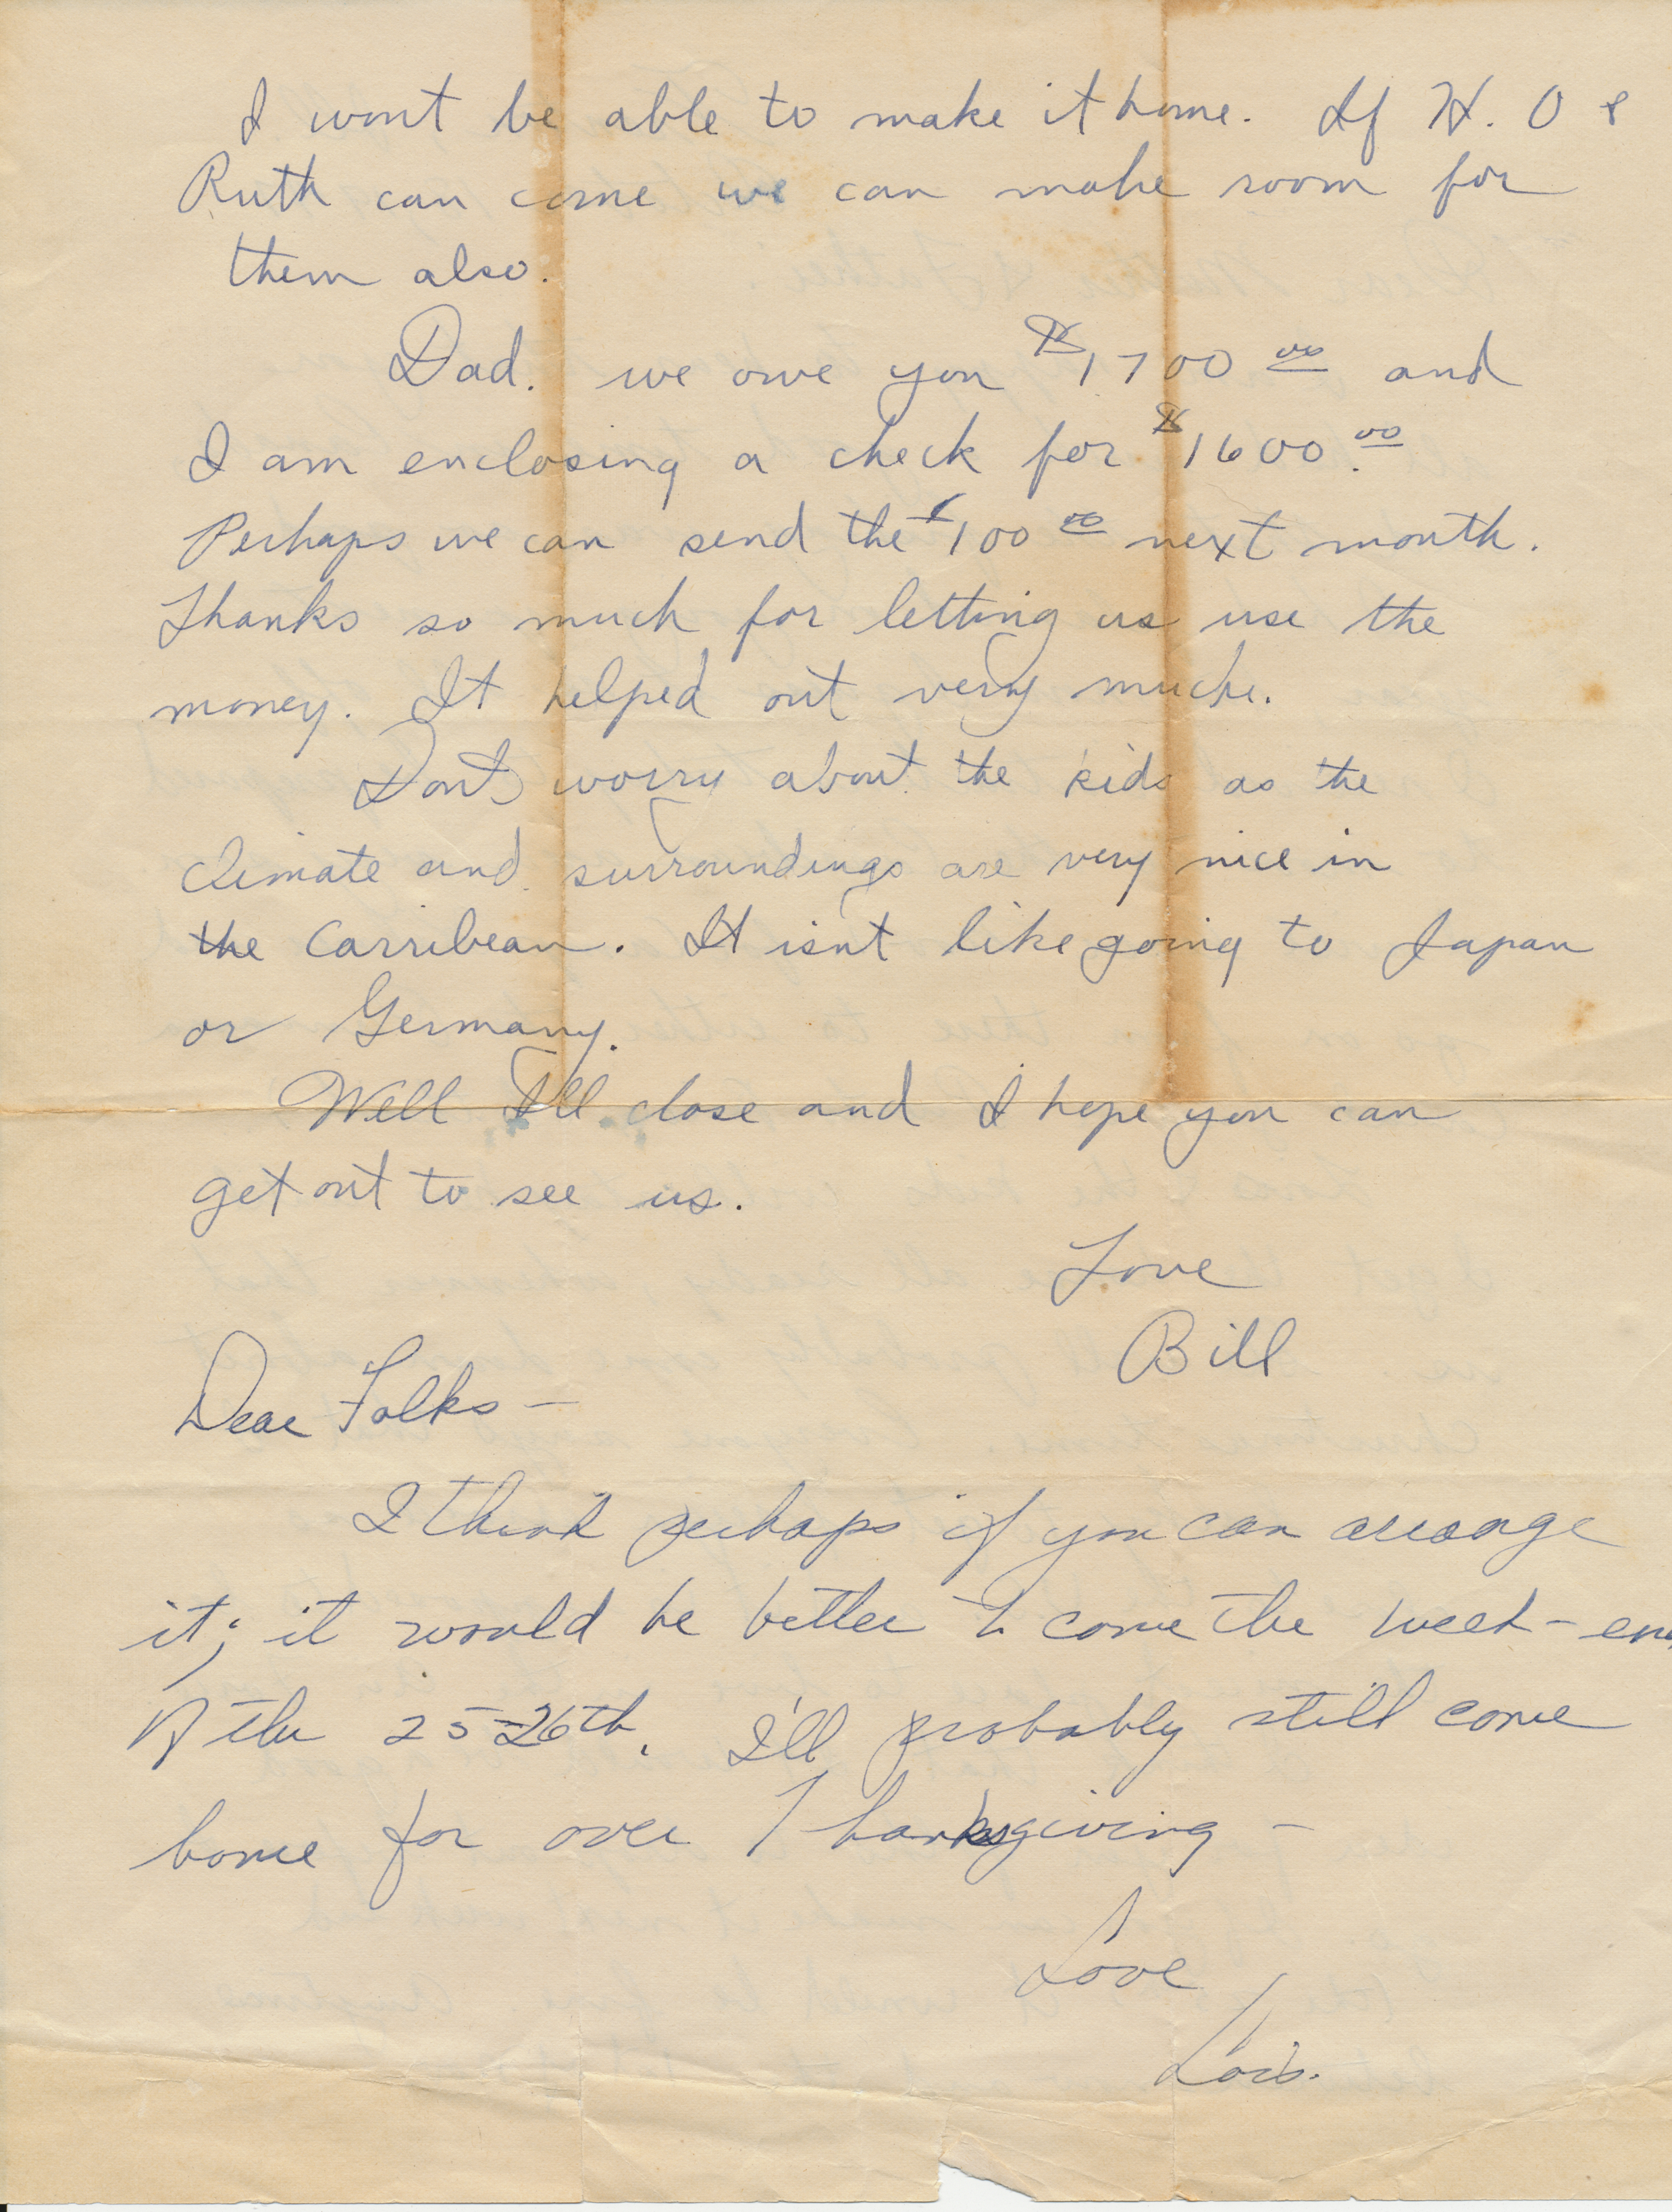 I wont be able to make it home. If H. O &
Ruth can come we can make room for
them also.
Dad. we owe you $1700.00 and
I am enclosing a check for $1600.00
Perhaps we can send the $100.00 next month.
Thanks so much for letting us use the
money. It helped out very much.
Dont worry about the kids as the
climate and surroundings are very nice in
the Carribean. It isnt like going to Japan
or Germany.
Well I'll close and I hope you can
get out to see us.
Love
Bill
Dear Folks—
I think perhaps if you can arrange
it; it would be better to come the week-end
of the 25-26th. I'll probably still come
home for over Thanksgiving—
Love
Lois.